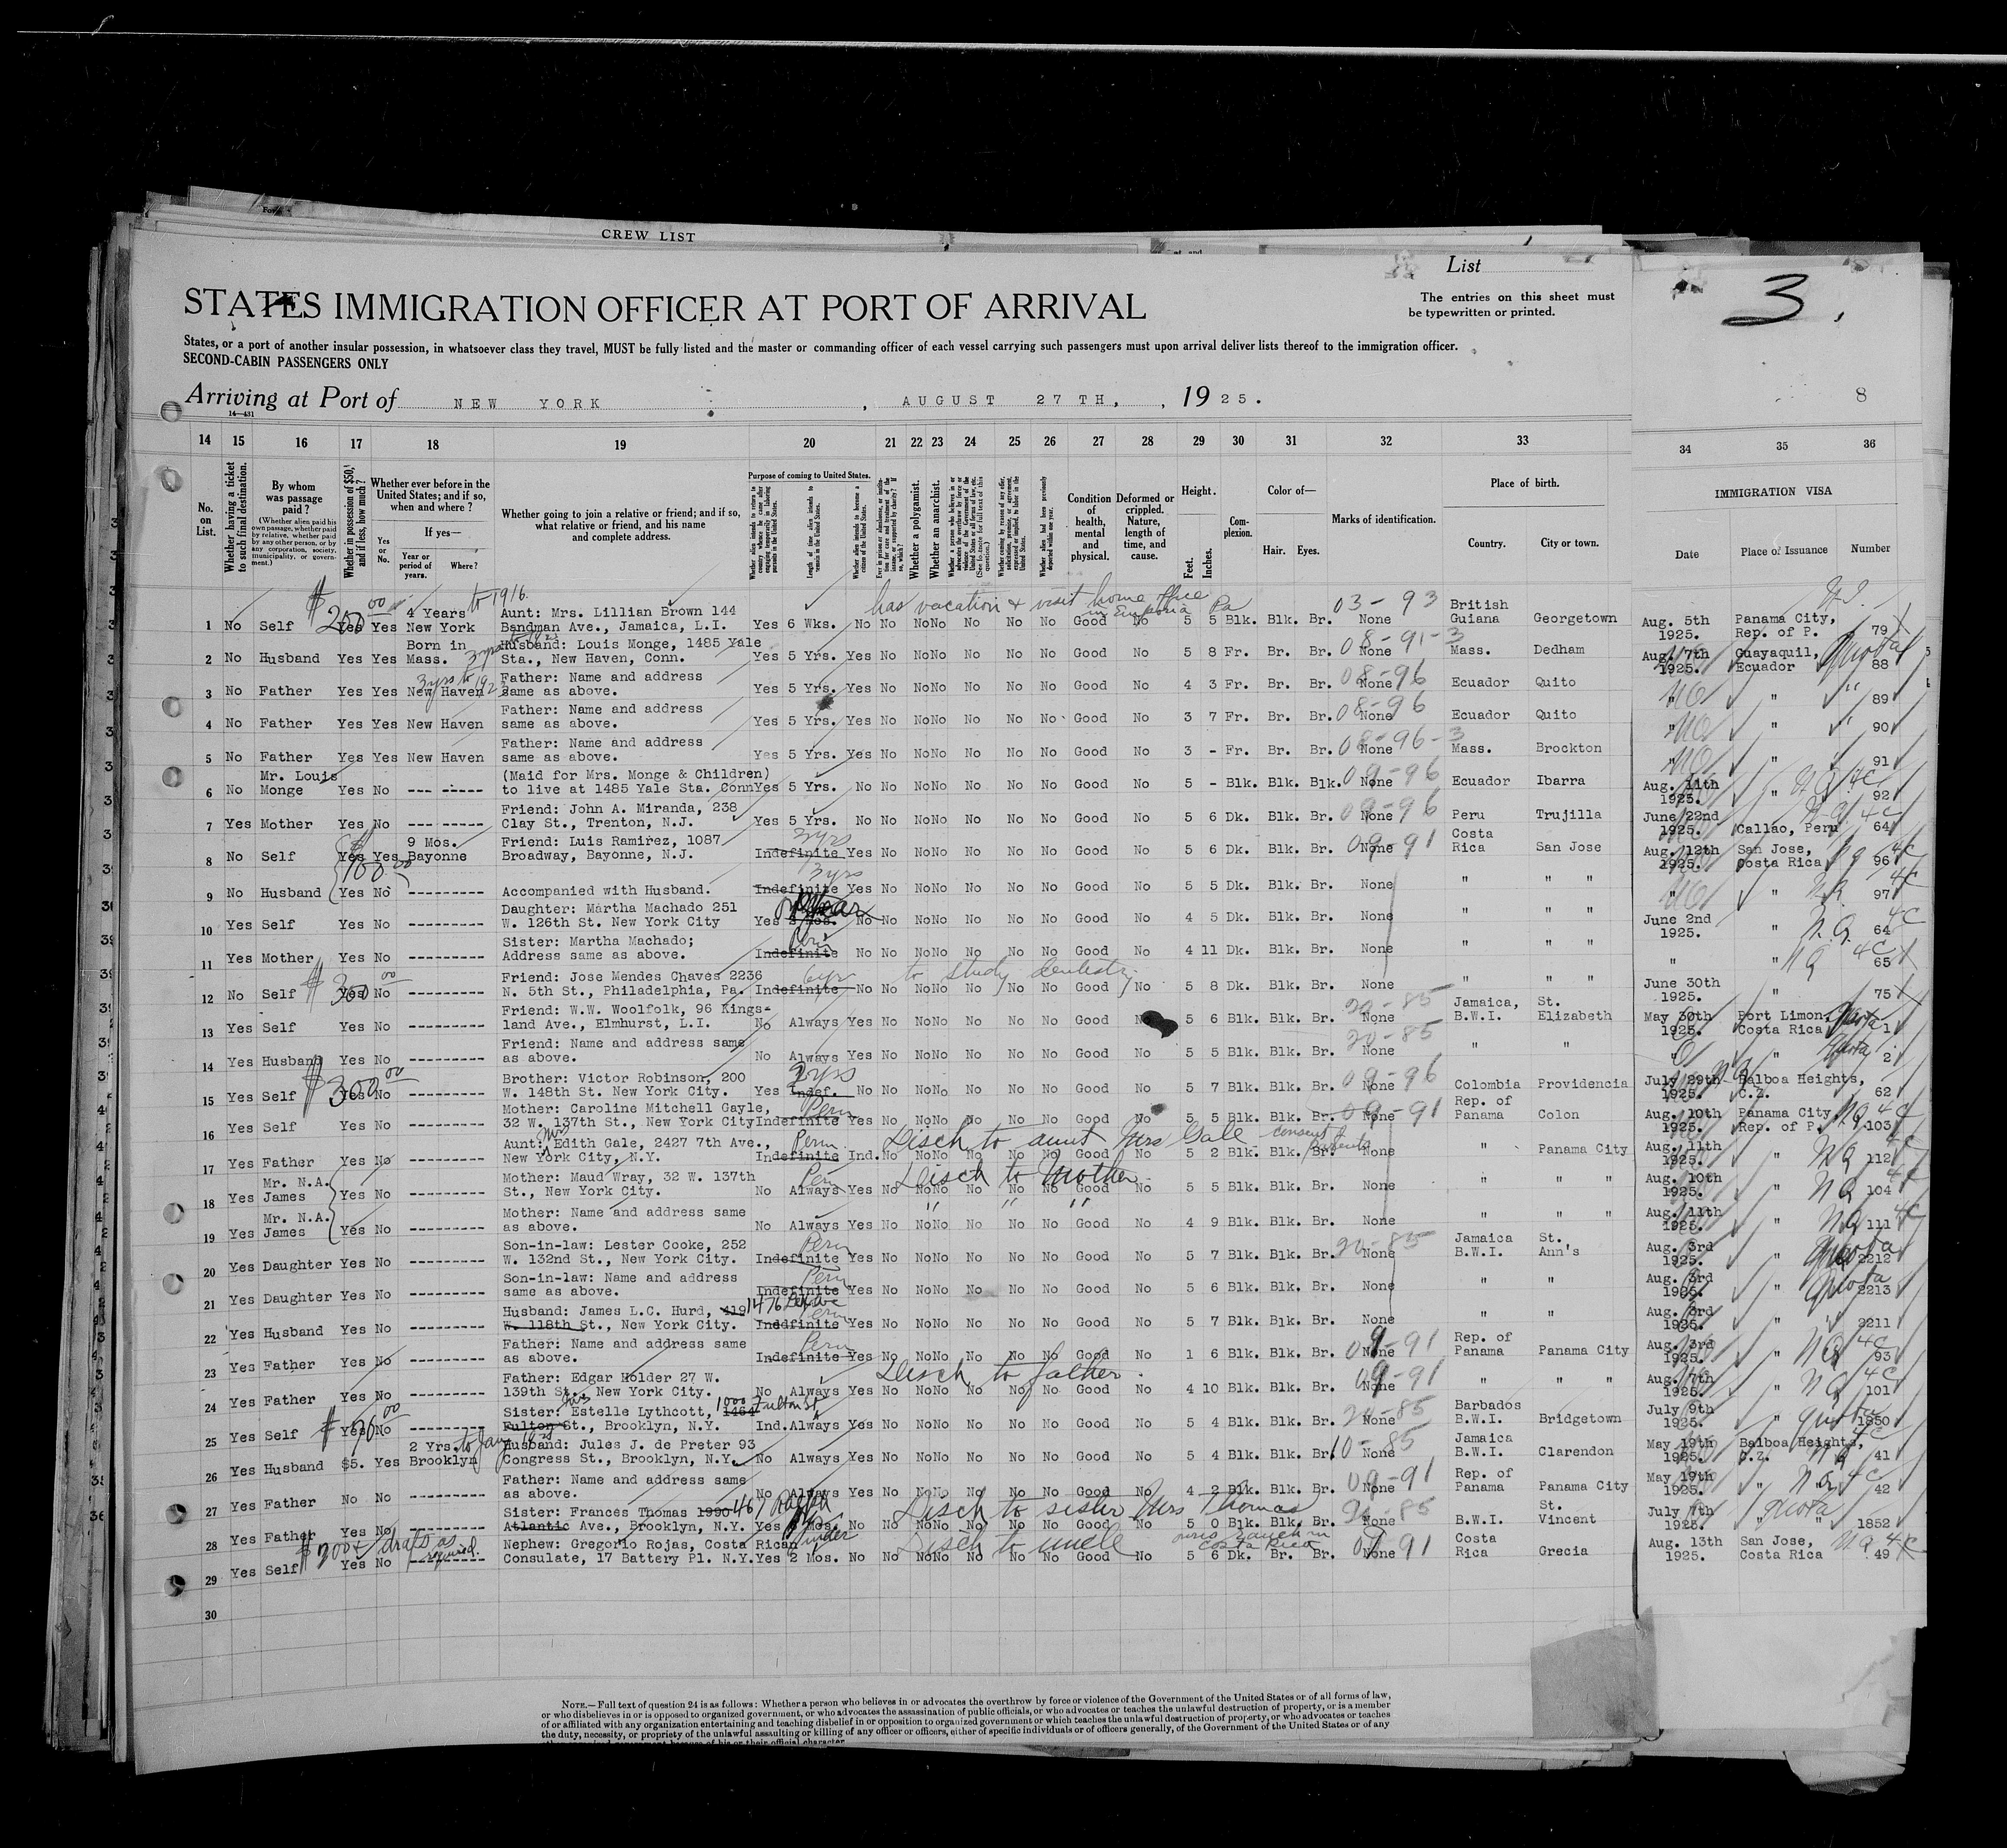 CREW LIST
List
3.
STATES IMMIGRATION OFFICER AT PORT OF ARRIVAL
The entries on this sheet must
be typewritten or printed.
States, or a port of another insular possession, in whatsoever class they travel, MUST be fully listed and the master or commanding officer of each vessel carrying such passengers must upon arrival deliver lists thereof to the immigration officer.
SECOND-CABIN PASSENGERS ONLY
Arriving at Port of NEW YORK, AUGUST 27TH, 1925.
8
14—431
14 15 16 17 18 19 20 21 22 23 24 25 26 27 28 29 30 31 32 33 34 35 36
No. on List.
Whether having a ticket to such final destination.
By whom was passage paid?
(Whether alien paid his own passage, whether paid by relative, whether paid by any other person, or by any corporation, society, municipality, or government.)
Whether in possession of $50, and if less, how much?
Whether ever before in the United States; and if so, when and where?
If yes—
Yes or No.
Year or period of years.
Where?
Whether going to join a relative or friend; and if so, what relative or friend, and his name and complete address.
Purpose of coming to United States.
Length of time alien intends to remain in the United States.
Whether alien intends to become a citizen of the United States.
Whether a polygamist.
Whether an anarchist.
Condition of health, mental and physical.
Deformed or crippled. Nature, length of time, and cause.
Height.
Feet. Inches.
Complexion.
Color of—
Hair. Eyes.
Marks of identification.
Place of birth.
Country. City or town.
IMMIGRATION VISA
Date Place of Issuance Number
$200 00 to 1916. has vacation & visit home office in Emporia Pa 03-93
1 No Self Yes Yes 4 Years New York Aunt: Mrs. Lillian Brown 144 Bandman Ave., Jamaica, L.I. Yes 6 Wks. No No No No No No No Good No 5 5 Blk. Blk. Br. None British Guiana Georgetown Aug. 5th 1925. Panama City, Rep. of P. 79
2 No Husband Yes Yes Born in Mass. Husband: Louis Monge, 1485 Yale Sta., New Haven, Conn. Yes 5 Yrs. Yes No No No No No No Good No 5 8 Fr. Br. Br. None 08-91-3 Mass. Dedham Aug. 7th 1925. Guayaquil, Ecuador Quota 88
3 No Father Yes Yes New Haven 3yrs to 192 Father: Name and address same as above. Yes 5 Yrs. Yes No No No No No No Good No 4 3 Fr. Br. Br. None 08-96 Ecuador Quito " " 89
4 No Father Yes Yes New Haven Father: Name and address same as above. Yes 5 Yrs. Yes No No No No No No Good No 3 7 Fr. Br. Br. None 08-96 Ecuador Quito " " 90
5 No Father Yes Yes New Haven Father: Name and address same as above. Yes 5 Yrs. Yes No No No No No No Good No 3 - Fr. Br. Br. None 08-96-3 Mass. Brockton " " 91
6 No Mr. Louis Monge Yes No --- ----- (Maid for Mrs. Monge & Children) to live at 1485 Yale Sta. Conn Yes 5 Yrs. No No No No No No No Good No 5 - Blk. Blk. Blk. None 09-96 Ecuador Ibarra Aug. 11th 1925. " NQ 4C 92
7 Yes Mother Yes No --- ----- Friend: John A. Miranda, 238 Clay St., Trenton, N.J. Yes 5 Yrs. No No No No No No No Good No 5 6 Dk. Blk. Br. None 09-96 Peru Trujilla June 22nd 1925. Callao, Peru NQ 4C 64
8 No Self Yes Yes 9 Mos. Bayonne Friend: Luis Ramirez, 1087 Broadway, Bayonne, N.J. Indefinite 3yrs Yes No No No No No No Good No 5 6 Dk. Blk. Br. None 09-91 Costa Rica San Jose Aug. 12th 1925. San Jose, Costa Rica NQ 4C 96
$100 00
9 No Husband Yes No --------- Accompanied with Husband. Indefinite 3yrs Yes No No No No No No Good No 5 5 Dk. Blk. Br. None " " " " " NQ 4C 97
10 Yes Self Yes No --------- Daughter: Martha Machado 251 W. 126th St. New York City Yes 2 Mos. year No No No No No No No Good No 4 5 Dk. Blk. Br. None " " " June 2nd 1925. " N.Q. 4C 64
11 Yes Mother Yes No --------- Sister: Martha Machado; Address same as above. Indefinite No No No No No No No Good No 4 11 Dk. Blk. Br. None " " " " " NQ 4C 65
12 No Self $300 00 Yes No --------- Friend: Jose Mendes Chaves 2236 N. 5th St., Philadelphia, Pa. Indefinite 6yrs to study dentistry No No No No No No No Good No 5 8 Dk. Blk. Br. None " " " June 30th 1925. " 75
13 Yes Self Yes No --------- Friend: W.W. Woolfolk, 96 Kings-land Ave., Elmhurst, L.I. No Always Yes No No No No No No Good No 5 6 Blk. Blk. Br. None 20-85 Jamaica, B.W.I. St. Elizabeth May 30th 1925. Port Limon, Costa Rica Quota 1
14 Yes Husband Yes No --------- Friend: Name and address same as above. No Always Yes No No No No No No Good No 5 5 Blk. Blk. Br. None 20-85 " " " Quota 2
15 Yes Self $300 00 Yes No --------- Brother: Victor Robinson, 200 W. 148th St. New York City. Yes Indef. 2yrs No No No No No No No Good No 5 7 Blk. Blk. Br. None 09-96 Colombia Providencia July 29th 1925. Balboa Heights, C.Z. 62
16 Yes Self Yes No --------- Mother: Caroline Mitchell Gayle, 32 W. 137th St., New York City Indefinite Perm Yes No No No No No No Good No 5 5 Blk. Blk. Br. None 09-91 Rep. of Panama Colon Aug. 10th 1925. Panama City, Rep. of P. NQ 4C 103
17 Yes Father Yes No --------- Aunt: Mrs Edith Gale, 2427 7th Ave., New York City, N.Y. Indefinite Perm. Ind. No No No No No No Good No Disch to aunt Mrs Gale consent of parents 5 2 Blk. Blk. Br. None " Panama City Aug. 11th 1925. " NQ 4C 112
18 Yes Mr. N.A. James Yes No --------- Mother: Maud Wray, 32 W. 137th St., New York City. No Always Perm Yes No No No No No No Good No Disch to Mother 5 5 Blk. Blk. Br. None " " " Aug. 10th 1925. " NQ 4C 104
19 Yes Mr. N.A. James Yes No --------- Mother: Name and address same as above. No Always Yes No No No No No No Good No " " " 4 9 Blk. Blk. Br. None " " " Aug. 11th 1925. " NQ 4C 111
20 Yes Daughter Yes No --------- Son-in-law: Lester Cooke, 252 W. 132nd St., New York City. Indefinite Perm Yes No No No No No No Good No 5 7 Blk. Blk. Br. None 20-85 Jamaica B.W.I. St. Ann's Aug. 3rd 1925. " Quota 2212
21 Yes Daughter Yes No --------- Son-in-law: Name and address same as above. Indefinite Perm Yes No No No No No No Good No 5 6 Blk. Blk. Br. None " " Aug. 3rd 1925. " Quota 2213
22 Yes Husband Yes No --------- Husband: James L.C. Hurd, 419 W. 118th St., New York City. 1476 Lex Ave Indefinite Perm Yes No No No No No No Good No 5 7 Blk. Blk. Br. None " " Aug. 3rd 1925. " " 2211
23 Yes Father Yes No --------- Father: Name and address same as above. Indefinite Perm Yes No No No No No No Good No 1 6 Blk. Blk. Br. None 09-91 Rep. of Panama Panama City Aug. 3rd 1925. " NQ 4C 93
24 Yes Father Yes No --------- Father: Edgar Holder 27 W. 139th St., New York City. No Always Yes No No No No No No Good No Disch to father. 4 10 Blk. Blk. Br. None 09-91 " " " Aug. 7th 1925. " NQ 4C 101
25 Yes Self $70 00 Yes No --------- Sister: Mrs Estelle Lythcott, 1464 Fulton St., Brooklyn, N.Y. 1000 Fulton St Ind. Always Yes No No No No No No Good No 5 4 Blk. Blk. Br. None 20-85 Barbados B.W.I. Bridgetown July 9th 1925. " Quota 1850
26 Yes Husband $5. Yes 2 Yrs. to Jany Brooklyn Husband: Jules J. de Preter 93 Congress St., Brooklyn, N.Y. No Always Yes No No No No No No Good No 5 4 Blk. Blk. Br. None 10-85 Jamaica B.W.I. Clarendon May 19th 1925. Balboa Heights, C.Z. NQ 4C 41
27 Yes Father No No --------- Father: Name and address same as above. No Always Yes No No No No No No Good No 4 2 Blk. Blk. Br. None 09-91 Rep. of Panama Panama City May 19th 1925. " NQ 4C 42
28 Yes Father Yes No --------- Sister: Frances Thomas 1990 Atlantic Ave., Brooklyn, N.Y. 467 Ralph Yes Mos. No No No No No No No Good No Disch to sister Mrs Thomas 5 0 Blk. Blk. Br. None 20-85 B.W.I. St. Vincent July 7th 1925. " Quota 1852
29 Yes Self $200 + drafts as required. Yes No Nephew: Gregorio Rojas, Costa Rican Consulate, 17 Battery Pl. N.Y. Yes 2 Mos. No No No No No No No Good No Disch to uncle owns ranch in Costa Rica 5 6 Dk. Br. Br. None 09-91 Costa Rica Grecia Aug. 13th 1925. San Jose, Costa Rica NQ 4C 49
30
NOTE.—Full text of question 24 is as follows: Whether a person who believes in or advocates the overthrow by force or violence of the Government of the United States or of all forms of law,
or who disbelieves in or is opposed to organized government, or who advocates the assassination of public officials, or who advocates or teaches the unlawful destruction of property, or is a member
of or affiliated with any organization entertaining and teaching disbelief in or opposition to organized government or which teaches the unlawful destruction of property, or who advocates or teaches
the duty, necessity, or propriety of the unlawful assaulting or killing of any officer or officers, either of specific individuals or of officers generally, of the Government of the United States or of any